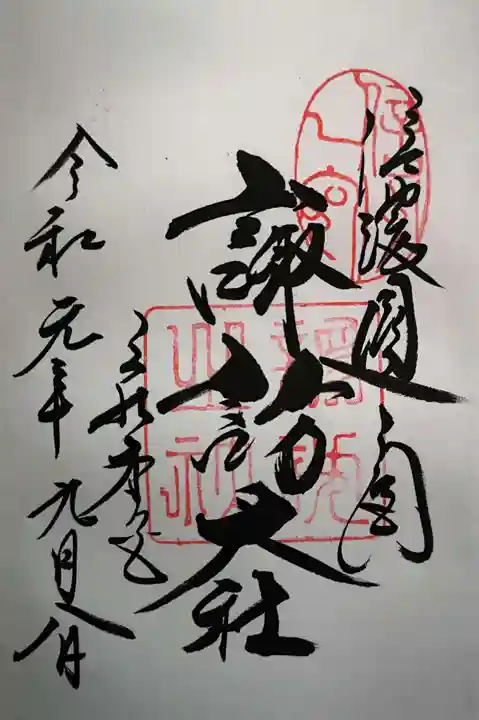 信濃國一之宮
諏訪大社
上社本宮
令和元年九月八日